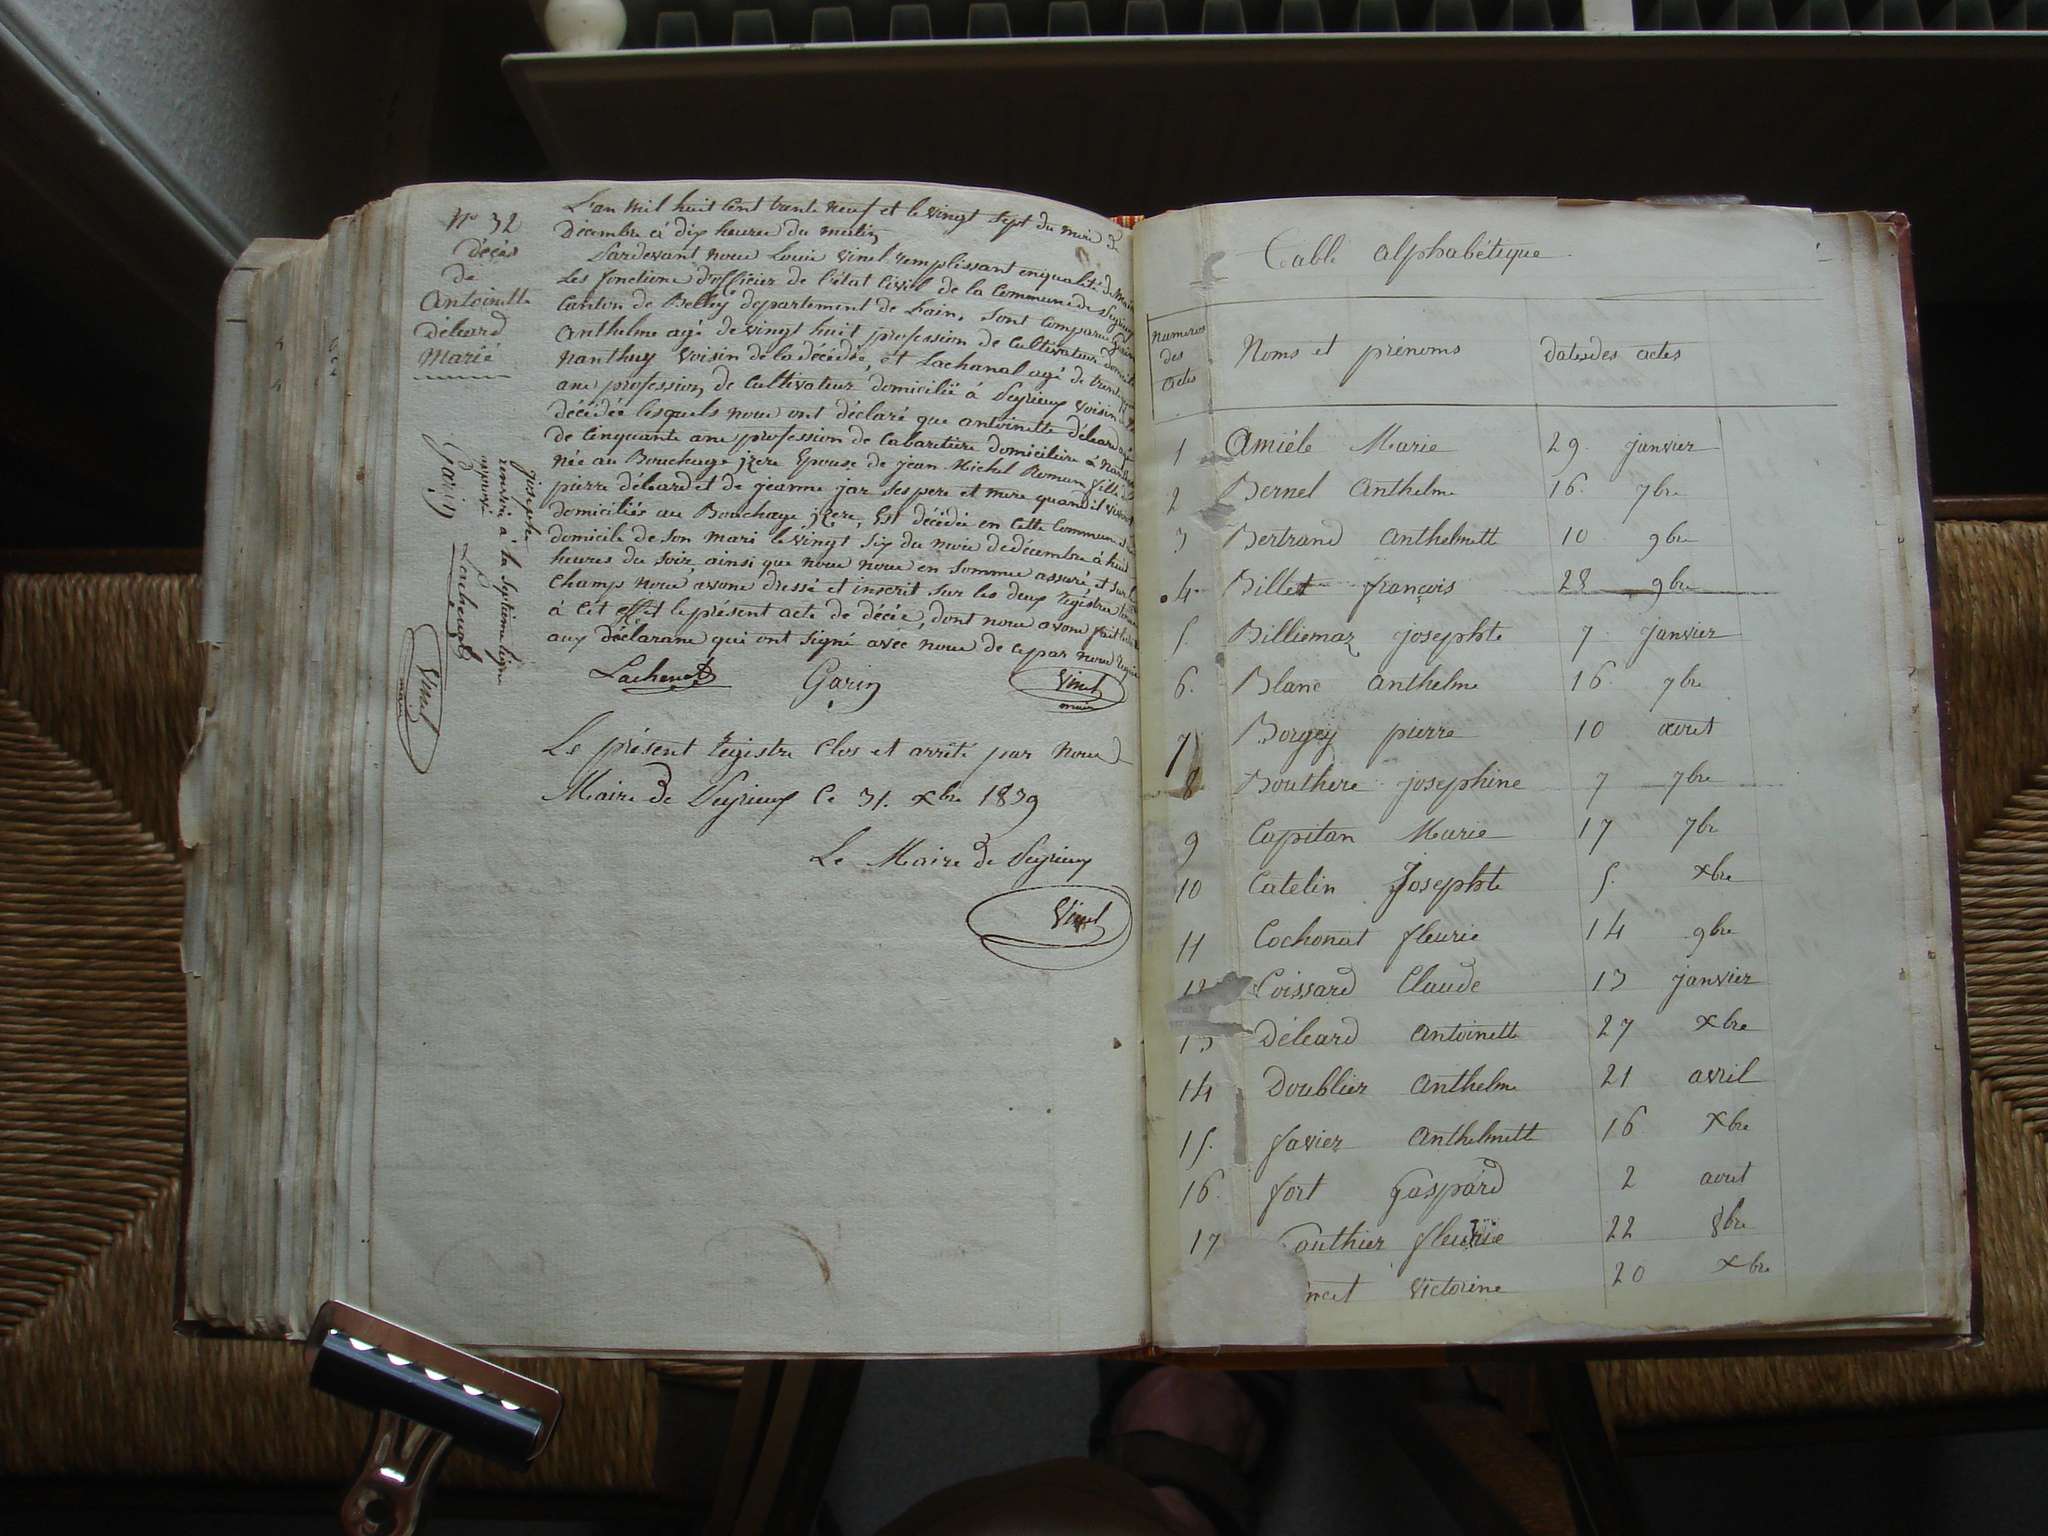 N° 32
Décès
de
Antoinette
Déléard
Marié
L'an mil huit cent trente neuf et le vingt sept du mois de
Décembre à dix heures du matin
Pardevant nous Louis Vinel remplissant en qualité de Maire
les fonctions d'officier de l'état civil de la Commune de Peyrieux
Canton de Belley département de l'ain, sont comparus Garin
Anthelme agé de vingt huit profession de cultivateur
Nanthuy voisin de la décédée, et Lachanal agé de trente
ans profession de Cultivateur domicilié à Peyrieux voisin
décédée lesquels nous ont déclaré que antoinette Déléard
de Cinquante ans profession de Cabaretière domiciliée à
née au Bouchage jzere Epouse de jean Michel Romun fille de
pierre déléard et de jeanne jar ses pere et mere quand il vivent
domiciliés au Bouchage jzere, Est décédée en cette Commune
domicile de son mari le vingt six du mois de décembre à huit
heures du soir, ainsi que nous nous en sommes assuré et sur le
champ nous avons dressé et inscrit sur les deux régistres
à cet effet le présent acte de décès, dont nous avons fait
aux déclarans qui ont signé avec nous de ce par nous requis
Lachenal Garin Vinel
maire
josephte
renvoi à la septieme ligne
approuvé
Garin Lachenal Vinel
maire
Le présent régistre clos et arrêté par nous
Maire de Peyrieux ce 31. xbre 1839
Le Maire de Peyrieux
Vinel
Table alphabétique
Numeros des actes Noms et prénoms dates des actes
1 Amiéle Marie 29 janvier
2 Bernel Anthelme 16 7bre
3 Bertrand Anthelmette 10 9bre
4 Billet françois 28 9bre
5. Billiemaz josephte 7 janvier
6. Blanc Anthelme 16 7bre
7 Borgey pierre 10 aout
8 Bouthere josephine 7 7bre
9 Capitan Marie 17 7bre
10 Catelin Josephte 5. xbre
11 Cochonat fleurie 14 9bre
12 Coissard Claude 13 janvier
13 Déléard Antoinette 27 xbre
14 Doublier Anthelme 21 avril
15. favier Anthelmette 16 xbre
16. fort Gaspard 2 aout
17 Gonthier fleurie 22 8bre
met Victorine 20 xbre